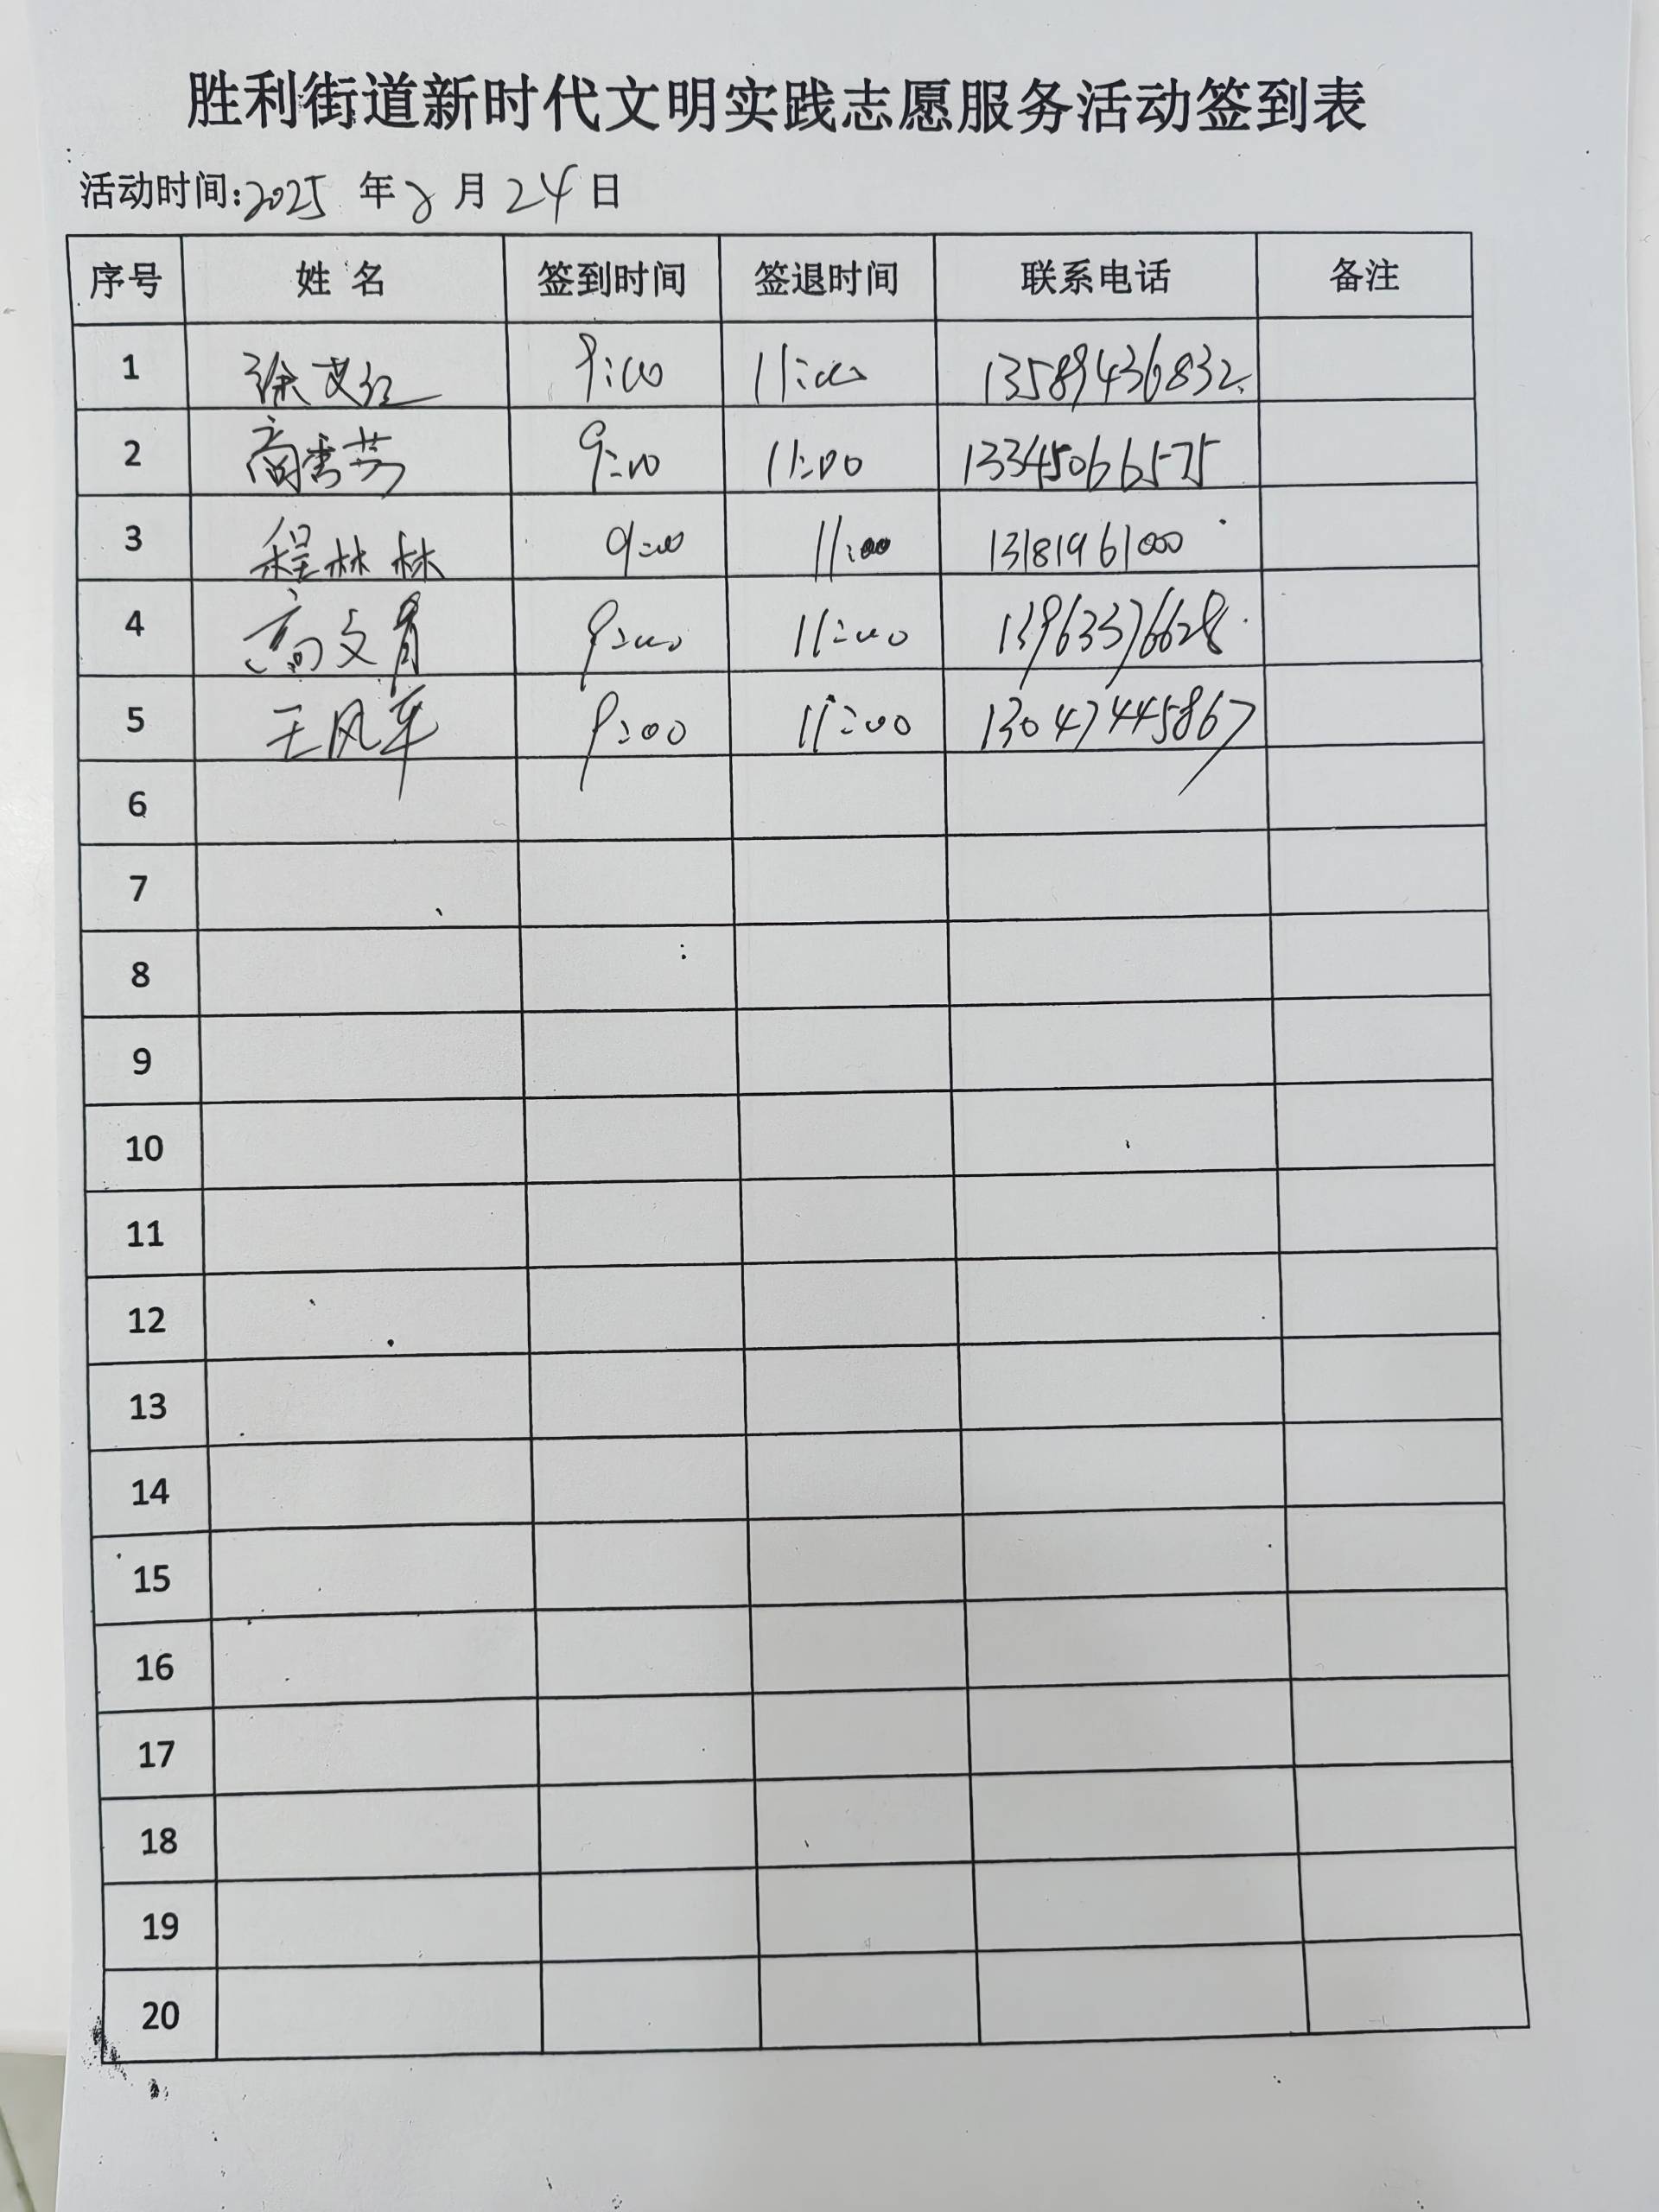 胜利街道新时代文明实践志愿服务活动签到表
活动时间:2025 年 2 月 24 日
序号 姓 名 签到时间 签退时间 联系电话 备注
1 徐艾红 9:00 11:00 13589436832
2 商秀芳 9:00 11:00 13345066575
3 程林林 9:00 11:00 13181961000
4 高文 9:00 11:00 13963376628
5 王风军 9:00 11:00 13047445867
6
7
8
9
10
11
12
13
14
15
16
17
18
19
20